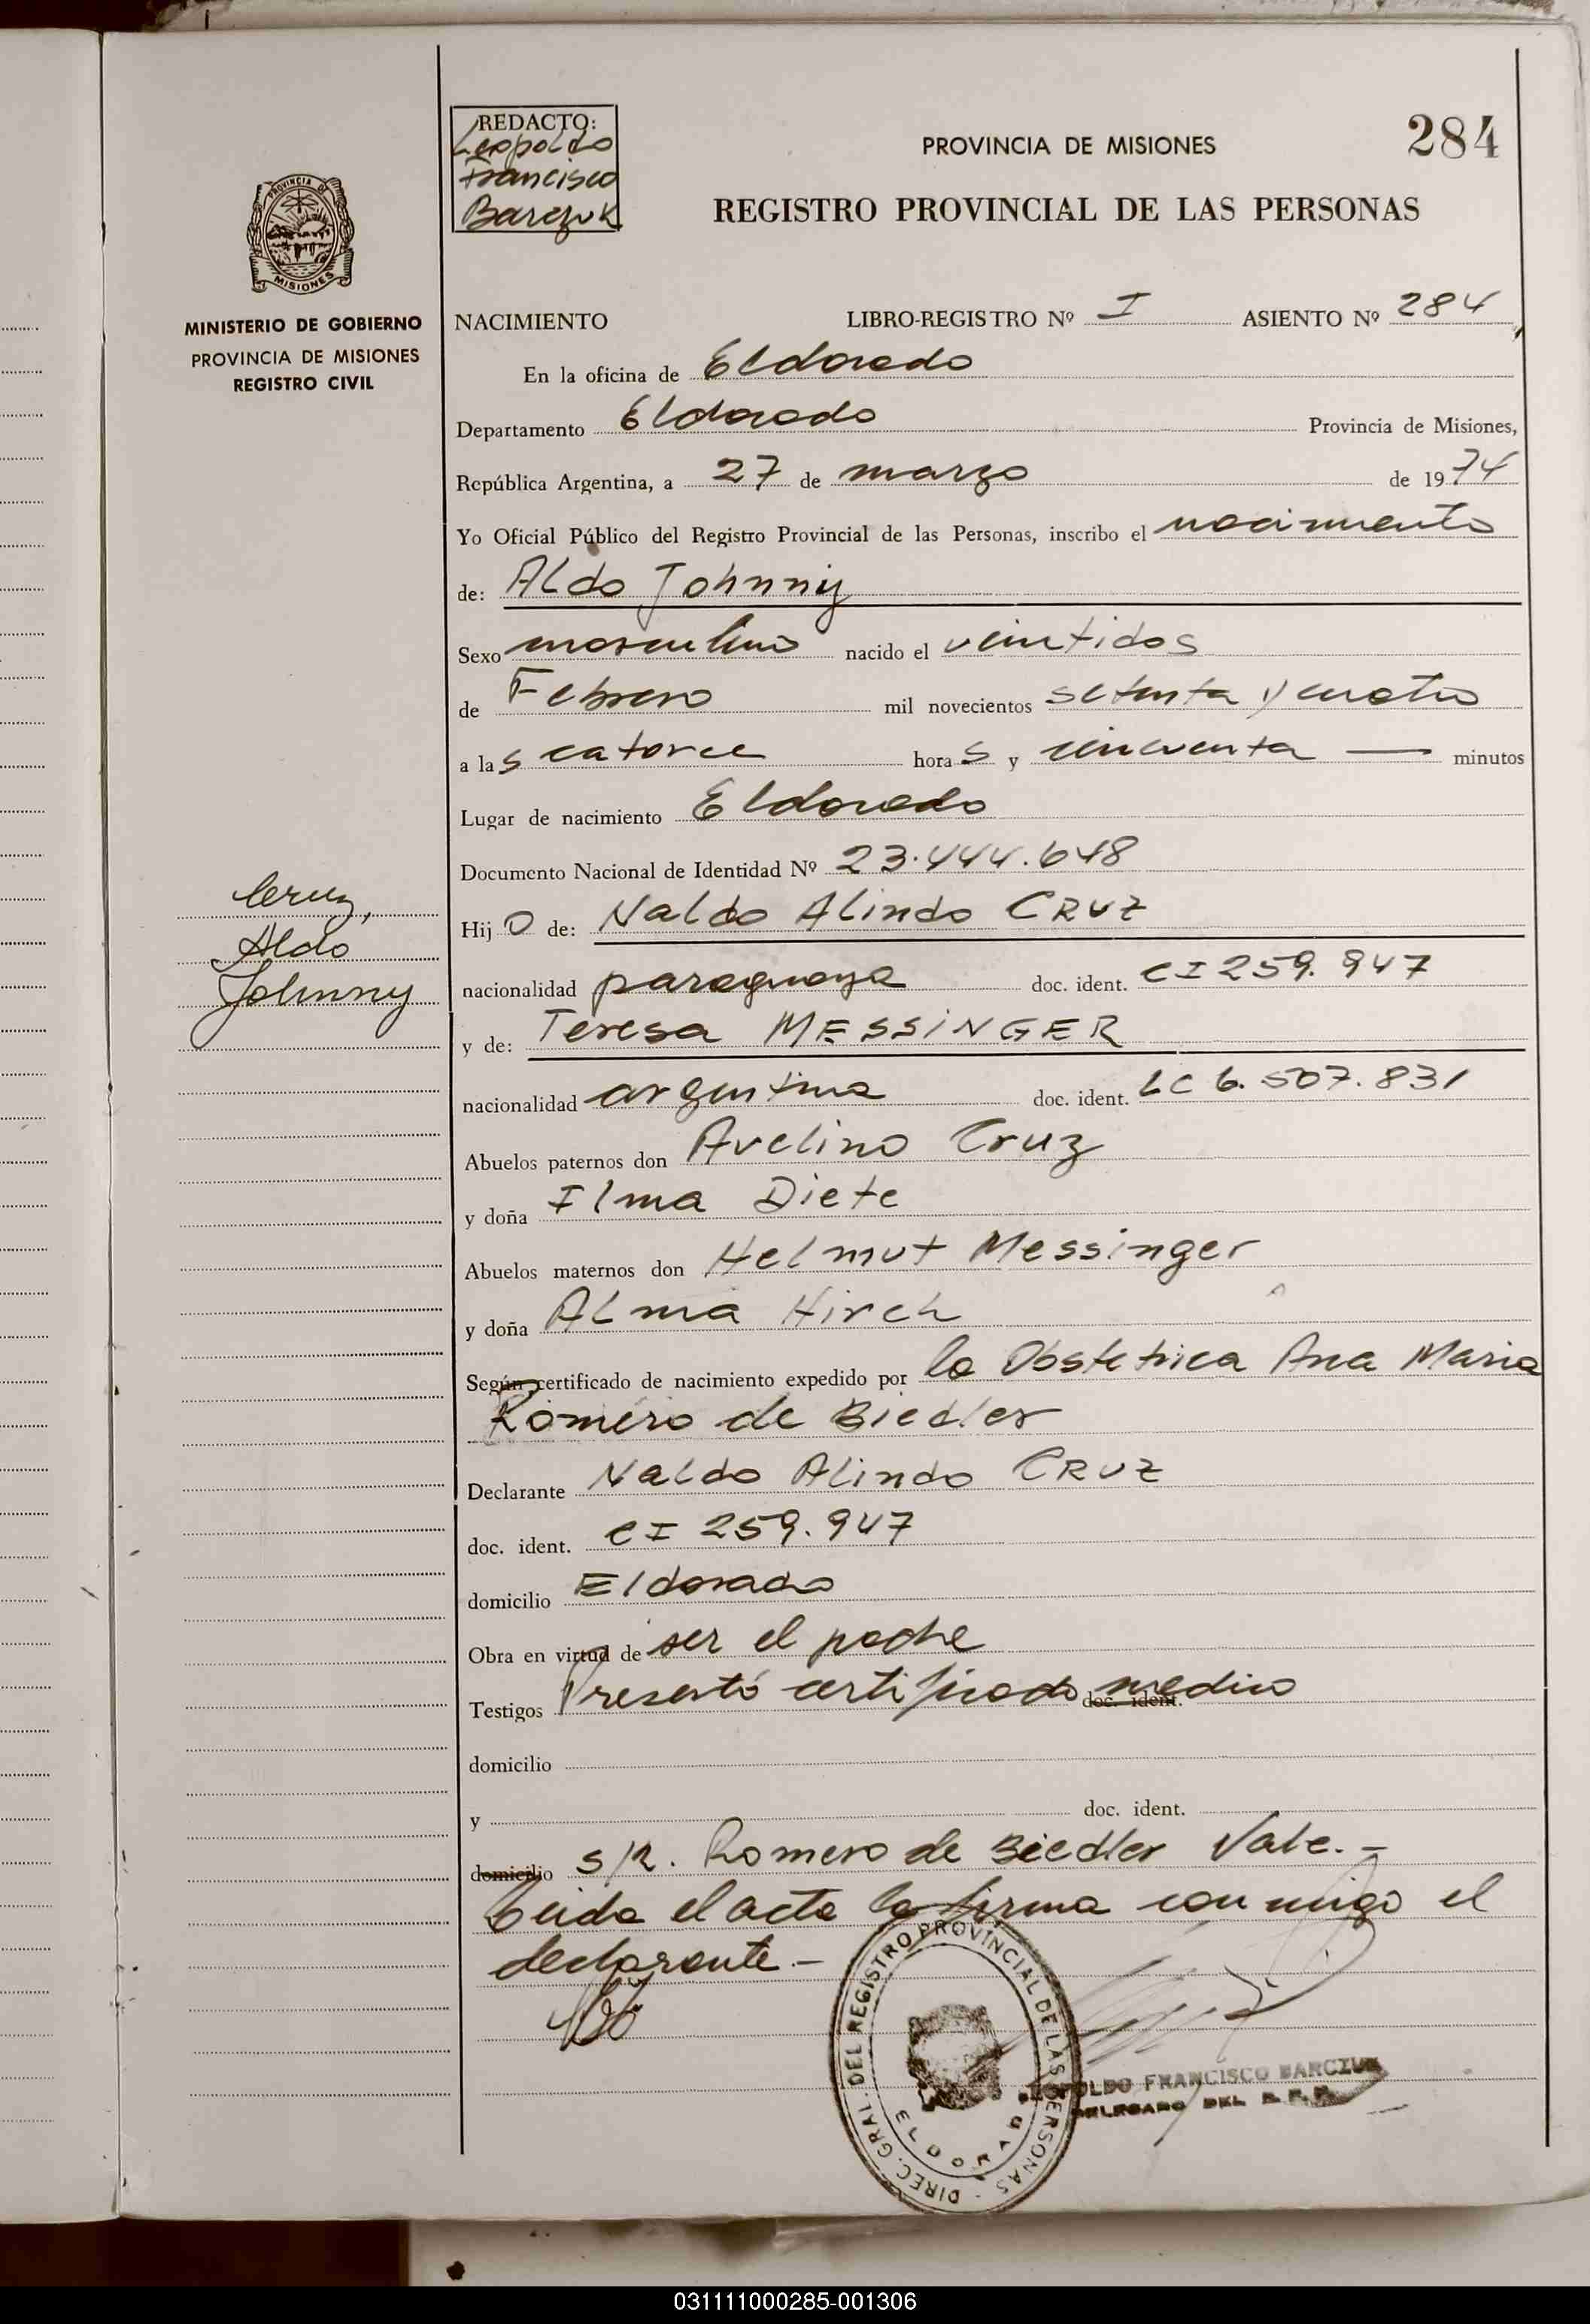 284
REDACTO:
Leopoldo
Francisco
Barczuk
PROVINCIA DE MISIONES
REGISTRO PROVINCIAL DE LAS PERSONAS
PROVINCIA DE
MISIONES
MINISTERIO DE GOBIERNO
PROVINCIA DE MISIONES
REGISTRO CIVIL
NACIMIENTO LIBRO-REGISTRO Nº I ASIENTO Nº 284
En la oficina de Eldorado
Departamento Eldorado Provincia de Misiones,
República Argentina, a 27 de marzo de 1974
Yo Oficial Público del Registro Provincial de las Personas, inscribo el nacimiento
de: Aldo Johnny
Sexo masculino nacido el veintidos
de Febrero mil novecientos setenta y cuatro
a las catorce horas y cincuenta — minutos
Lugar de nacimiento Eldorado
Documento Nacional de Identidad Nº 23.444.648
Cruz,
Aldo
Johnny
Hijo de: Naldo Alindo CRUZ
nacionalidad paraguaya doc. ident. CI 259.947
y de: Teresa MESSINGER
nacionalidad argentina doc. ident. LC 6.507.831
Abuelos paternos don Avelino Cruz
y doña Ilma Diete
Abuelos maternos don Helmut Messinger
y doña Alma Hirch
Según certificado de nacimiento expedido por la Obstetrica Ana Maria
Romero de Biedler
Declarante Naldo Alindo CRUZ
doc. ident. CI 259.947
domicilio Eldorado
Obra en virtud de ser el padre
Testigos Presentó certificado doc. ident. medico
domicilio
y doc. ident.
domicilio s/R. Romero de Biedler Vale.-
Leida el acta la firma conmigo el
declarante.-
DIREC. GRAL. DEL REGISTRO PROVINCIAL DE LAS PERSONAS -
ELDORADO
LEOPOLDO FRANCISCO BARCZUK
DELEGADO DEL R. P. P.
031111000285-001306